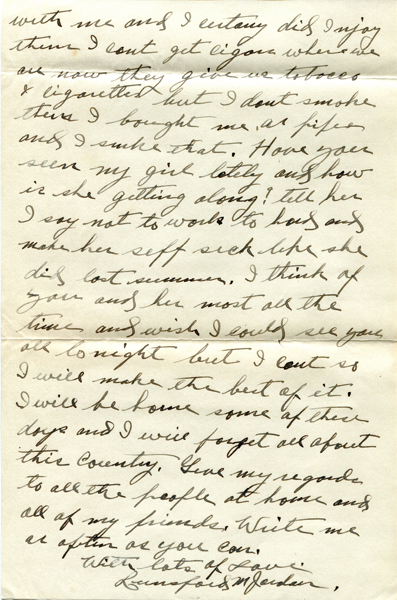 with me and I certany did Injoy
them I cant get cigars where we
are now they give us tobacco
& cigaretts but I dont smoke
them I bought me a pipe
and I smoke that. Have you
seen my girl lately and how
is she getting along? tell her
I say not to work to hard and
make her self sick like she
did last summer. I think of
you and her most all the
time and wish I could see you
all tonight but I cant so
I will make the best of it.
I will be home some of these
days and I will forget all about
this country. Give my regards
to all the people at home and
all of my friends. Write me
as often as you can.
With lots of Love
Lunsford M Jordan.